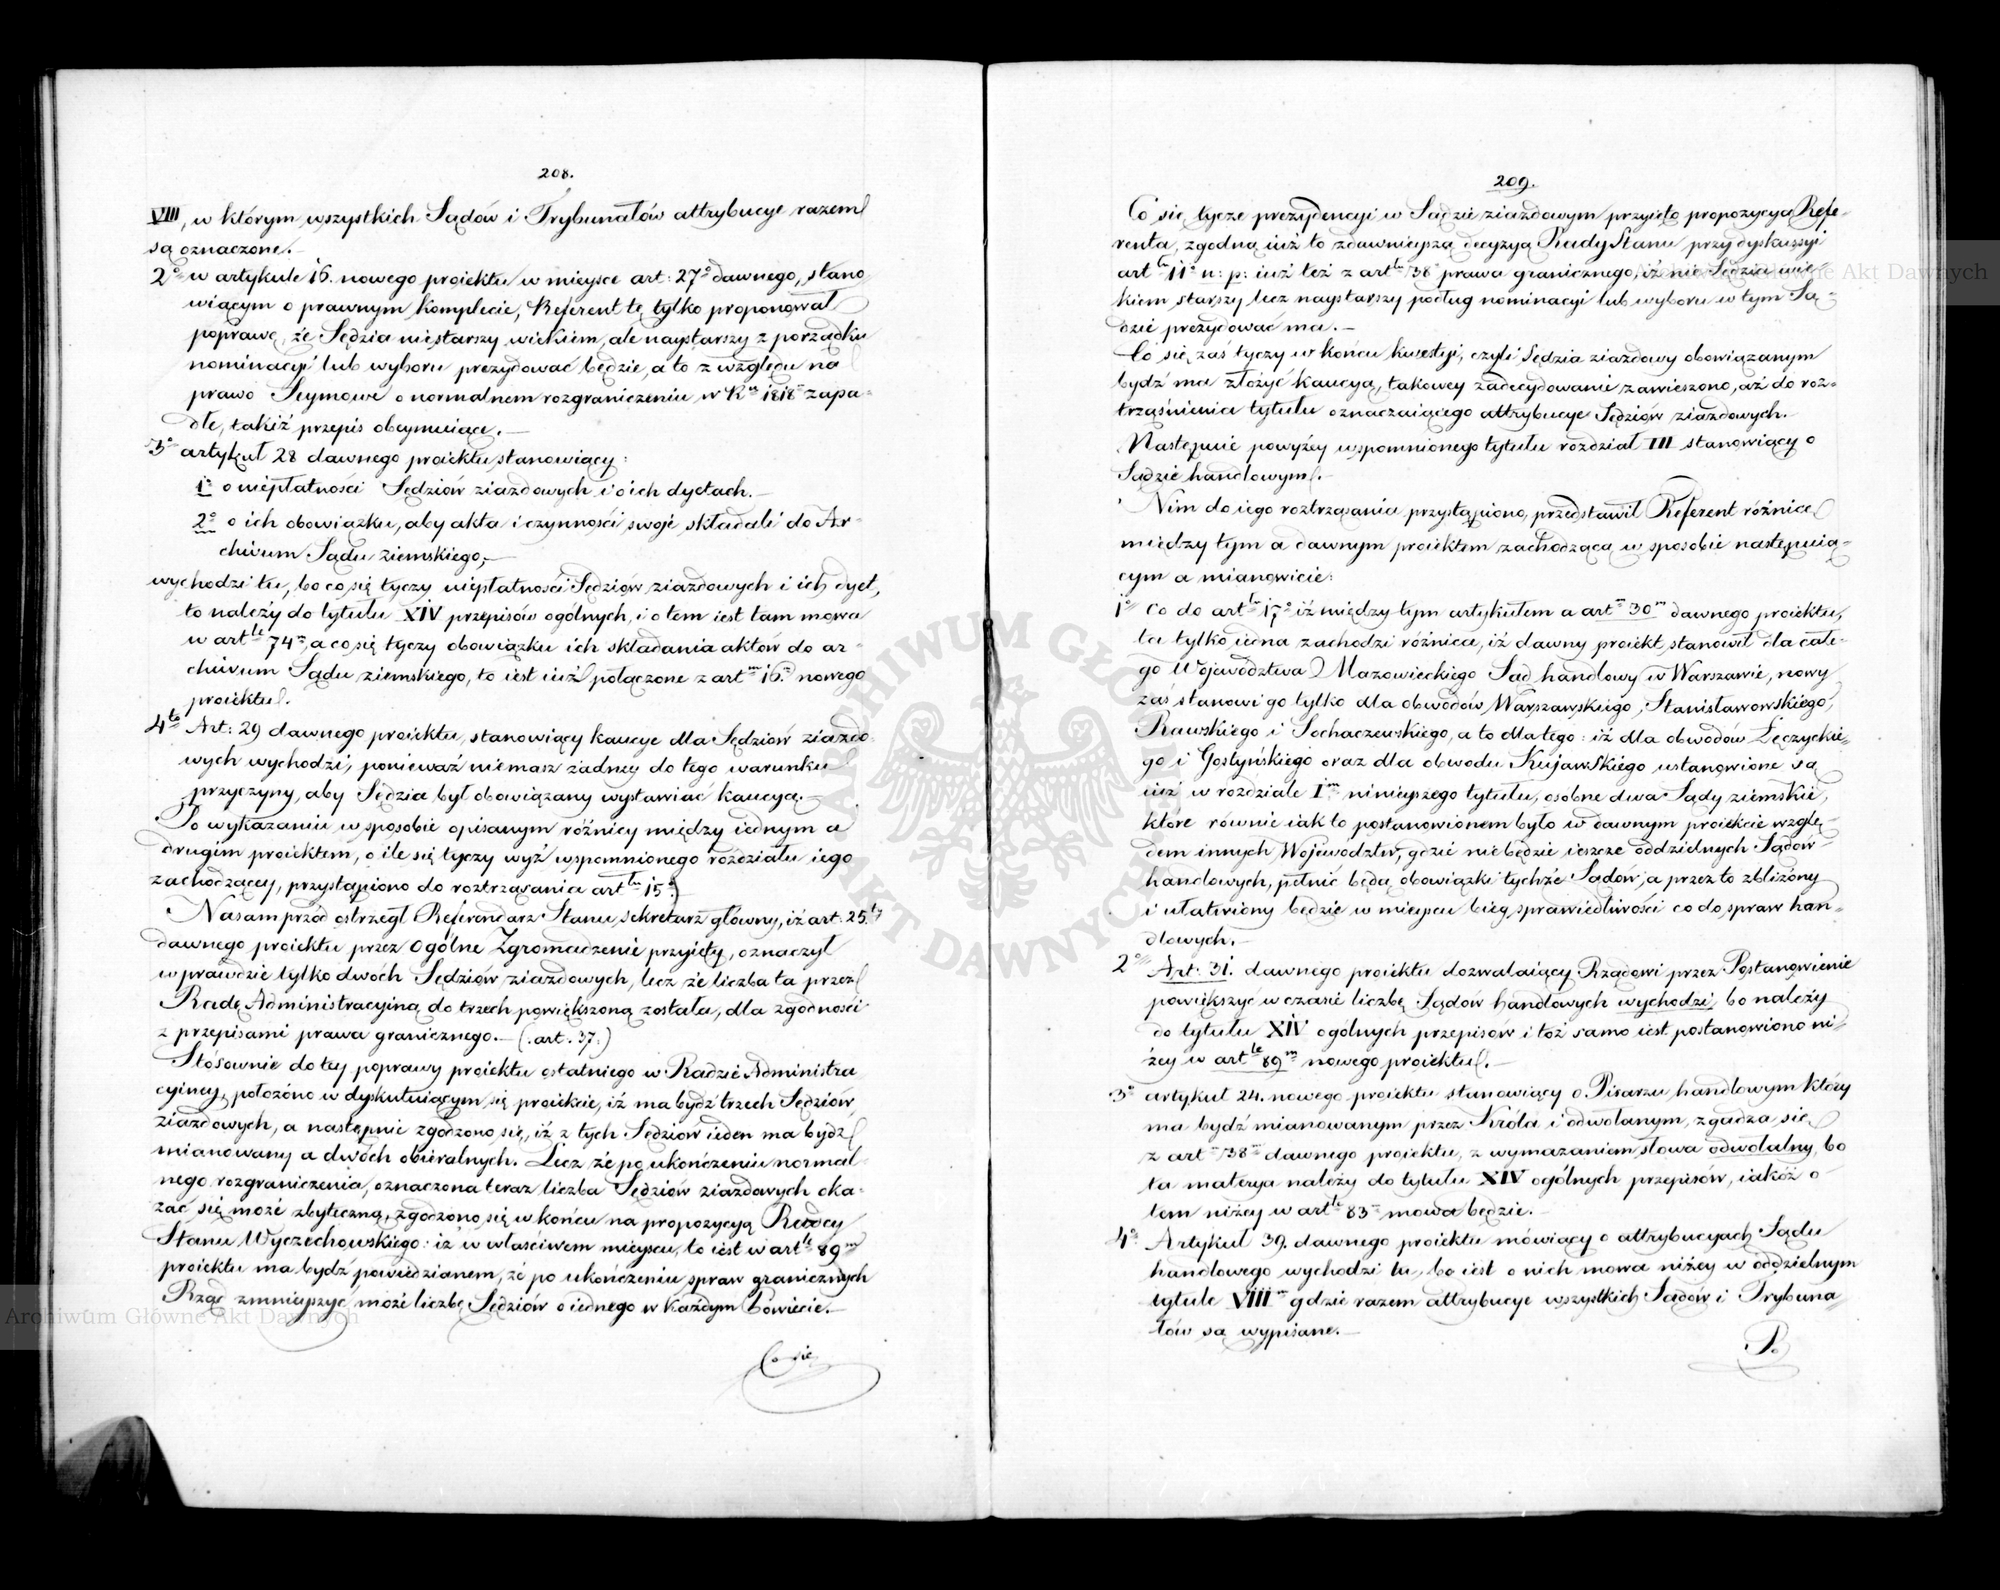 208.
VIII, w którym wszystkich Sądów i Trybunałów attrybucye razem
są oznaczone.—
2° w artykule 16. nowego proiektu w mieysce art: 27° dawnego, stano-
wiącym o prawnym komplecie, Referent tę tylko proponował
poprawę, że Sędzia nie starszy wiekiem, ale naystarszy z porządku
nominacyi lub wyboru prezydować będzie, a to z względu na
prawo Seymowe o normalnem rozgraniczeniu w R. 1818 zapa-
dłe, takiż przepis obeymuiące.—
3° artykuł 28 dawnego proiektu stanowiący:
1° o niepłatności Sędziów ziazdowych i o ich dyetach.—
2° o ich obowiązku, aby akta i czynności swoje składali do Ar-
chivum Sądu ziemskiego,—
wychodzi tu, bo co się tyczy niepłatności Sędziów ziazdowych i ich dyet,
to należy do tytułu XIV przepisów ogólnych, i o tem iest tam mowa
w art^le 74^m, a co się tyczy obowiązku ich składania aktów do ar-
chivum Sądu ziemskiego, to iest iuż połączone z art^m 16.^m nowego
proiektu.
4^to Art: 29 dawnego proiektu, stanowiący kaucye dla Sędziów ziazdo-
wych wychodzi, ponieważ niemasz żadney do tego warunku
przyczyny, aby Sędzia był obowiązany wystawiać kaucyą.—
Po wykazaniu w sposobie opisanym różnicy między iednym a
drugim proiektem, o ile się tyczy wyż wspomnionego rozdziału iego
zachodzącey, przystąpiono do roztrząsania art^łu 15°.
Nasamprzód ostrzegł Referendarz Stanu, sekretarz główny, iż art: 25^ty
dawnego proiektu przez Ogólne Zgromadzenie przyięty, oznaczył
wprawdzie tylko dwóch Sędziów ziazdowych, lecz że liczba ta przez
Radę Administracyiną do trzech powiększoną została, dla zgodności
z przepisami prawa granicznego.— (: art. 37:)
Stósownie do tey poprawy proiektu ostatniego w Radzie Administra
cyiney, położono w dyskutuiącym się proiekcie, iż ma bydź trzech Sędziów
ziazdowych, a następnie zgodzono się, iż z tych Sędziów ieden ma bydź
mianowany a dwóch obieralnych. Lecz że po ukończeniu normal-
nego rozgraniczenia, oznaczona teraz liczba Sędziów ziazdowych oka-
zać się może zbyteczną, zgodzono się w końcu na propozycyą Radcy
Stanu Wyczechowskiego: iż w właściwem mieyscu, to iest w art^le 89^m
proiektu ma bydź powiedzianem, że po ukończeniu spraw granicznych
Rząd zmnieyszyć może liczbę Sędziów o iednego w każdym Powiecie.—
Co się
209.
Co się tycze prezydencyi w Sądzie ziazdowym przyięto propozycyą Refe-
renta, zgodną iuż to z dawnieyszą decyzyą Rady Stanu przy dyskussyi
art^łu 11° n: p: iuż też z art^łu 38° prawa granicznego, iż nie Sędzia wie-
kiem starszy lecz naystarszy podług nominacyi lub wyboru w tym Są-
dzie prezydować ma.—
Co się zaś tyczy w końcu kwestyi, czyli Sędzia ziazdowy obowiązanym
bydź ma złożyć kaucyą, takowey zadecydowanie zawieszono, aż do roz-
trząśnienia tytułu oznaczaiącego attrybucye Sędziów ziazdowych.—
Następuie powyżey wspomnionego tytułu rozdział III stanowiący o
Sądzie handlowym.—
Nim do iego roztrząsania przystąpiono, przedstawił Referent różnice
między tym a dawnym proiektem zachodzącą w sposobie następuią-
cym a mianowicie:
1° Co do art^łu 17° iż między tym artykułem a art^m 30^m dawnego proiektu,
ta tylko iedna zachodzi różnica, iż dawny proiekt stanowił dla całe-
go Województwa Mazowieckiego Sąd handlowy w Warszawie, nowy
zaś stanowi go tylko dla obwodów Warszawskiego, Stanisławowskiego,
Rawskiego i Sochaczewskiego, a to dla tego: iż dla obwodów Łęczyckie-
go i Gostyńskiego oraz dla obwodu Kujawskiego ustanowione są
iuż w rozdziale I^m ninieyszego tytułu, osobne dwa Sądy ziemskie,
które równie iak to postanowionem było w dawnym proiekcie wzglę-
dem innych Województw, gdzie nie będzie ieszcze oddzielnych Sądów
handlowych, pełnić będą obowiązki tychże Sądów, a przez to zbliżony
i ułatwiony będzie w mieyscu bieg sprawiedliwości co do spraw han-
dlowych.—
2° Art: 31. dawnego proiektu dozwalaiący Rządowi przez Postanowienie
powiększyć w czasie liczbę Sądów handlowych wychodzi, bo należy
do tytułu XIV ogólnych przepisów i toż samo iest postanowiono ni-
żey w art^le 89^m nowego proiektu.—
3° artykuł 24. nowego proiektu stanowiący o Pisarzu handlowym który
ma bydź mianowanym przez Króla i odwołanym, zgadza się
z art^m 38^m dawnego proiektu, z wymazaniem słowa odwołalny, bo
ta materya należy do tytułu XIV ogólnych przepisów, iakoż o
tem niżey w art^le 83^m mowa będzie.—
4° Artykuł 39. dawnego proiektu mówiący o attrybucyach Sądu
handlowego wychodzi tu, bo iest o nich mowa niżey w oddzielnym
tytule VIII^m gdzie razem attrybucye wszystkich Sądów i Trybuna-
łów są wypisane.—
Po
ARCHIWUM GŁÓWNE AKT DAWNYCH
Archiwum Główne Akt Dawnych
Archiwum Główne Akt Dawnych